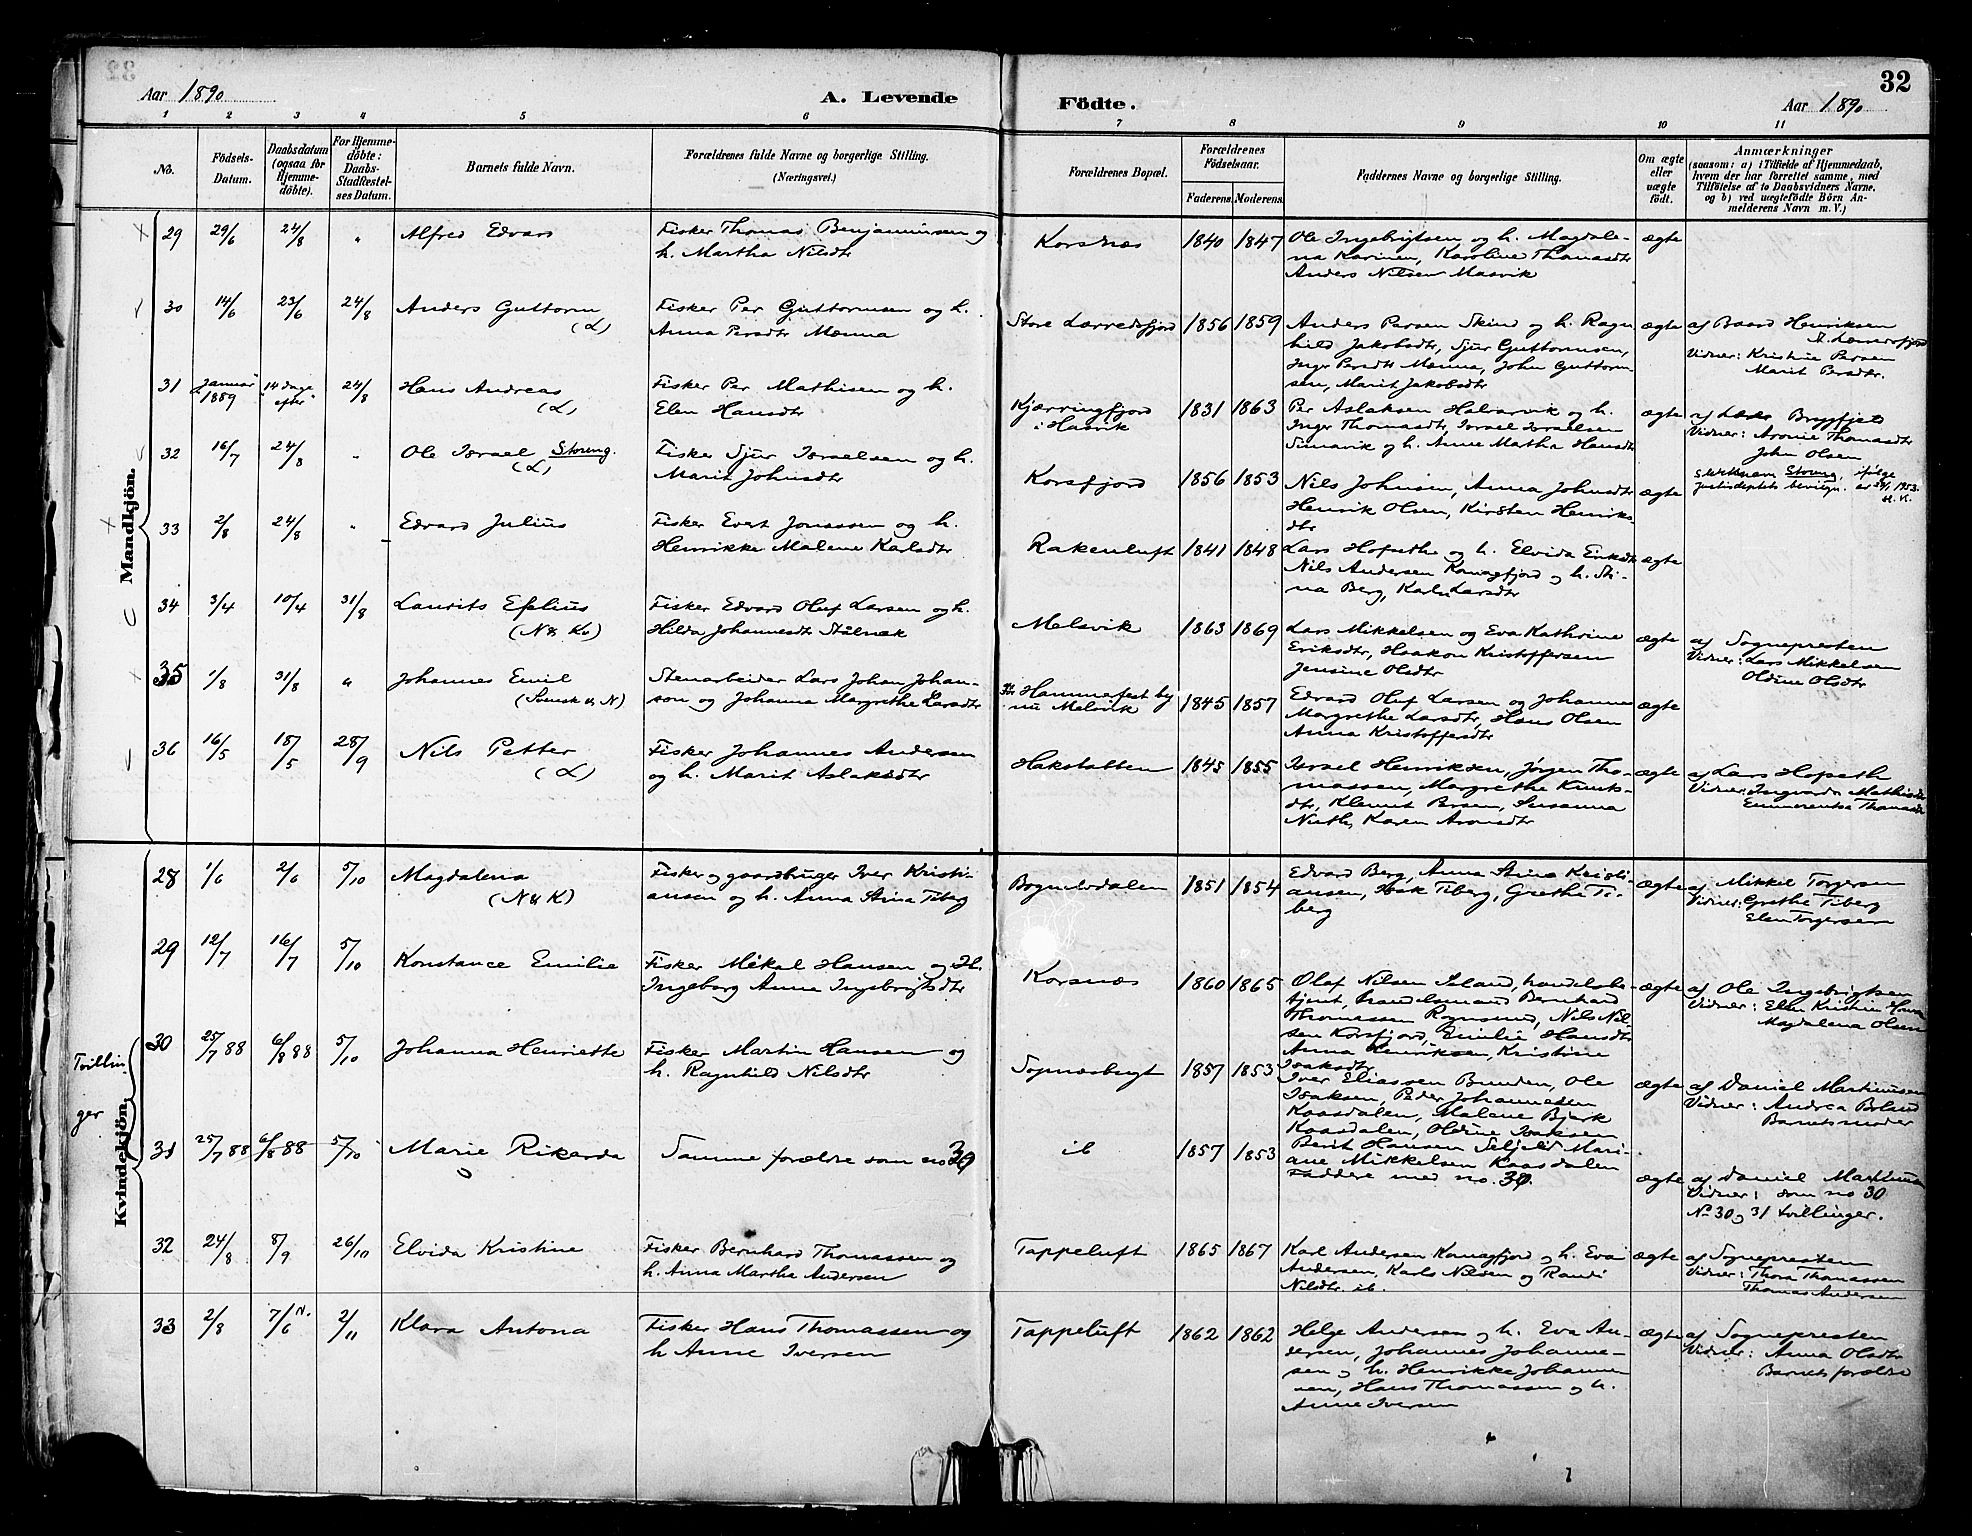 32
Aar 1890
A. Levende
Födte.
Aar 1890
1 2 3 4 5 6 7 8 9 10 11
No.
Födsels-Datum.
Daabsdatum (ogsaa for Hjemme-döbte).
For Hjemme-döbte: Daabs-Stadfæstel-ses Datum.
Barnets fulde Navn.
Forældrenes fulde Navne og borgerlige Stilling.
(Næringsvei.)
Forældrenes Bopæl.
Forældrenes Födselsaar.
Faderens. Moderens.
Faddernes Navne og borgerlige Stilling.
Om ægte eller uægte födt.
Anmærkninger
(saasom: a) i Tilfælde af Hjemmedaab,
hvem der har forrettet samme, med
Tilföielse af to Daabsvidners Navne.
og b) ved uægtefödte Börn An-
melderens Navn m.V.)
Mandkjön.
29 29/6 24/8 " Alfred Edvard
Fisker Thomas Benjaminsen og
h. Martha Nilsdtr
Korsnæs 1840 1847
Ole Ingebrigtsen og h. Magdale-
na Karinen, Karoline Thomasdtr
Anders Nilsen Masvik
ægte
30 14/6 23/6 24/8 Anders Guttorm
(L)
Fisker Per Guttormsen og h.
Anna Persdtr Mænna
Store Lærredsfjord 1856 1859
Anders Persen Skind og h. Ragn
hild Jakobsdtr, Sjur Guttormsen,
Inger Persdtr Mænna, John Guttorm
sen, Marit Jakobsdtr
ægte
af Baard Henriksen
Vidner: Kristine Persen
Marit Persdtr.
31 Januar 1889 14 dage efter 24/8 Hans Andreas
(L)
Fisker Per Mathisen og h.
Elen Hansdtr
Kjærringfjord
i Hasvik
1831 1863
Per Aslaksen Halvarvik og h.
Inger Thomasdtr, Israel Israelsen
Simavik og h. Anne Matha Hansdtr
ægte
af Bryggfjeld
Vidner: Aronie Thomasdtr
John Olsen
32 16/7 24/8 " Ole Israel Storeng.
(L)
Fisker Sjur Israelsen og h.
Marit Johnsdtr
Korsfjord 1856 1853
Nils Johnsen, Anna Johnsdtr
Henrik Olsen, Kirsten Henriks-
dtr
ægte
Slektsnavn Storeng, ifølge
justisdeptets bevilgn. av 1953.
33 2/8 24/8 " Edvard Julius
Fisker Evert Jonassen og h.
Henrikke Malene Karlsdtr
Rakenluft 1841 1848
Lars Hofseth og h. Elvida Eriksdtr
Nils Andersen Komagfjord og h. Sti-
na Berg, Karl Larsdtr
ægte
34 3/4 10/4 31/8 Laurits Efelius
(N & K)
Fisker Edvard Oluf Larsen og h.
Hilda Johannesdtr Stålnæk
Melsvik 1863 1869
Lars Mikkelsen og Eva Kathrine
Eriksdtr, Haakon Kristoffersen
Jensine Olsdtr
ægte
af Sognepresten
Vidner: Lars Mikkelsen
Oldine Olsdtr
35 1/8 31/8 " Johannes Emil
(Svensk & N)
Stenarbeider Lars Johan Johan-
son og Johanna Margrethe Larsdtr
Hammerfest by
nu Melsvik
1845 1857
Edvard Oluf Larsen og Johanna
Margrethe Larsdtr, Hans Olsen
Anna Kristoffersdtr
ægte
36 16/5 18/5 28/9 Nils Petter
(L)
Fisker Johannes Andersen
og h. Marit Aslaksdtr
Hakstabben 1845 1855
Israel Henriksen, Jørgen Tho-
massen, Margrethe Knuts-
dtr, Klemet Persen, Susanna
Nuth, Karen Aronsdtr
ægte
af Lars Hopseth
Vidner: Ingvarda Mathisdtr
Emmerentse Thomasdtr
Kvindekjön.
28 1/6 2/6 5/10 Magdalena
(N & K)
Fisker og gaardbruger Iver Kristi-
ansen og h. Anna Stina Tiberg
Bognelvdalen 1851 1854
Edvard Berg, Anna Stina Kristi-
ansen, Isak Tiberg, Grethe Ti-
berg
ægte
af Mikkel Torgersen
Vidner: Grethe Tiberg
Elen Torgersen
29 12/7 16/7 5/10 Konstance Emilie
Fisker Mikal Hansen og h.
Ingeborg Anna Ingebrigtsdtr
Korsnæs 1860 1865
Olaf Nilsen Island, handelsbe-
tjent, handelsmand Bernhard
Thomassen Rognsund, Nils Nil-
sen Korsfjord, Emilie Hansdtr
Anna Henriksen, Kristine
Isaksdtr
ægte
af Ole Ingebrigtsen
Vidner: Ellen Kristine Hansen
Magdalena Olsen
Tvillin-
ger
30 25/7 88 6/8 88 5/10 Johanna Henriette
Fisker Martin Hansen og
h. Ragnhild Nilsdtr
Sopnesbugt 1857 1853
Iver Eliassen Bunden, Ole
Isaksen, Peder Johannesen
Kaasdalen, Malene Bjerk
Kaasdalen, Oldine Isaksen
Berit Hansen Seljelid Mari-
ane Mikkelsen Kaasdalen
ægte
af Daniel Martinusen
Vidner: Andrea Boland
Barnets moder
31 25/7 88 6/8 88 5/10 Marie Rikarda
Samme forældre som no 30
ib 1857 1853
Faddere med no. 30.
ægte
af Daniel Martinusen
Vidner: som no 30
No 30 og 31 tvillinger.
32 24/8 8/9 26/10 Elvida Kristine
Fisker Bernhard Thomassen og
h. Anna Martha Andersen
Tappeluft 1865 1867
Karl Andersen Komagfjord og h. Eva
Andersen, Karls Nilsen og Randi
Nilsdtr ib.
ægte
af Sognepresten
Vidner: Thora Thomassen
Thomas Andersen
33 2/8 7/6 N. 2/11 Klara Antona
Fisker Hans Thomassen og
h Anne Iversen
Tappeluft 1862 1862
Helge Andersen og h. Eva An-
dersen, Johannes Johanne-
sen og h. Henrikke Johanne
sen, Hans Thomassen og h.
Anne Iversen
ægte
af Sognepresten
Vidner: Anna Olsdtr
Barnets forældre